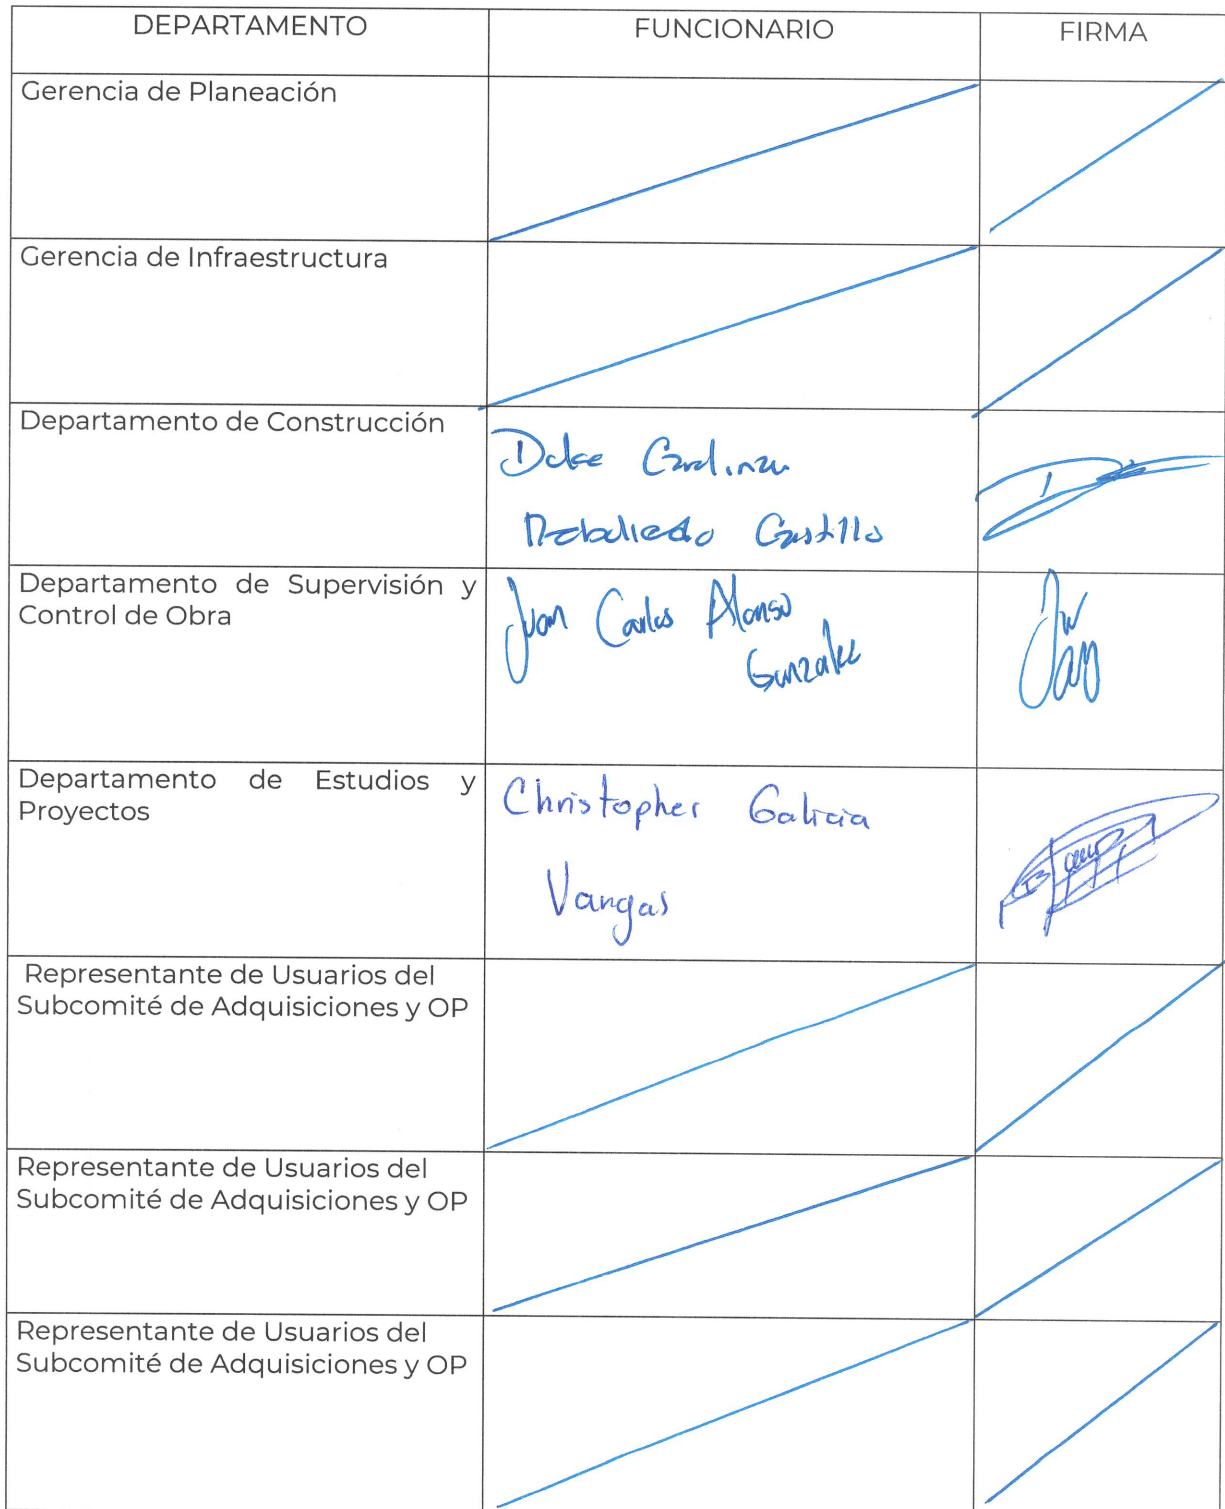 DEPARTAMENTO FUNCIONARIO FIRMA
Gerencia de Planeación
Gerencia de Infraestructura
Departamento de Construcción
Dulce
Castillo
Departamento de Supervisión y
Control de Obra
Juan Carlos Alonso
Gonzalez
Departamento de Estudios y
Proyectos
Christopher Galicia
Vargas
Representante de Usuarios del
Subcomité de Adquisiciones y OP
Representante de Usuarios del
Subcomité de Adquisiciones y OP
Representante de Usuarios del
Subcomité de Adquisiciones y OP